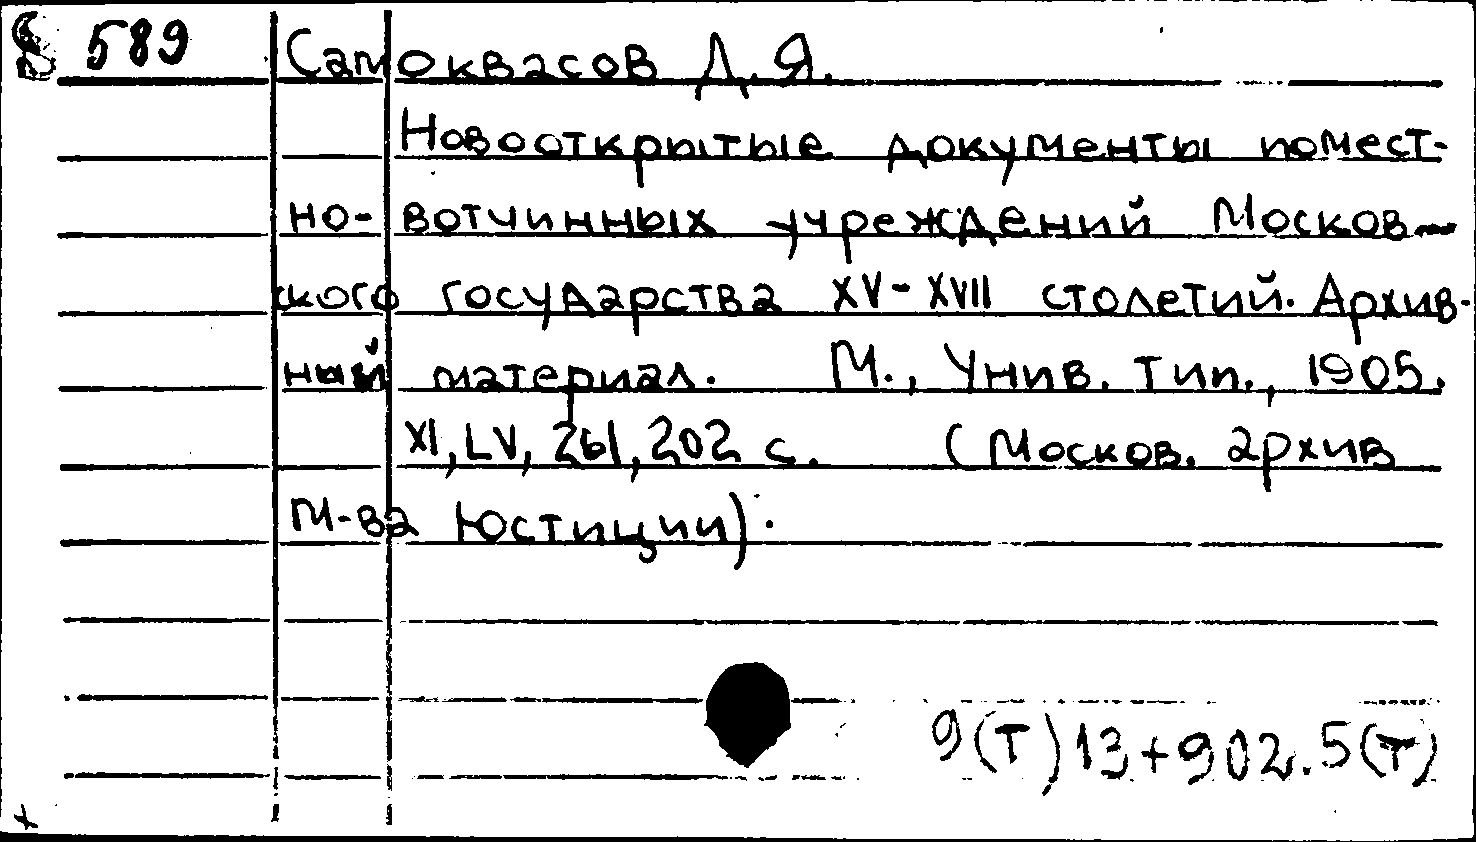 589 Самоквасов Д.Я.
Новооткрытые документы помест-
но-вотчинных учреждений Москов-
ского государства XV-XVII столетий. Архив-
ный материал. М., Унив. тип., 1905.
XI, LV, 261, 202 с. (Москов. архив
м-ва юстиции).
9(Т)13+902.5(Т)